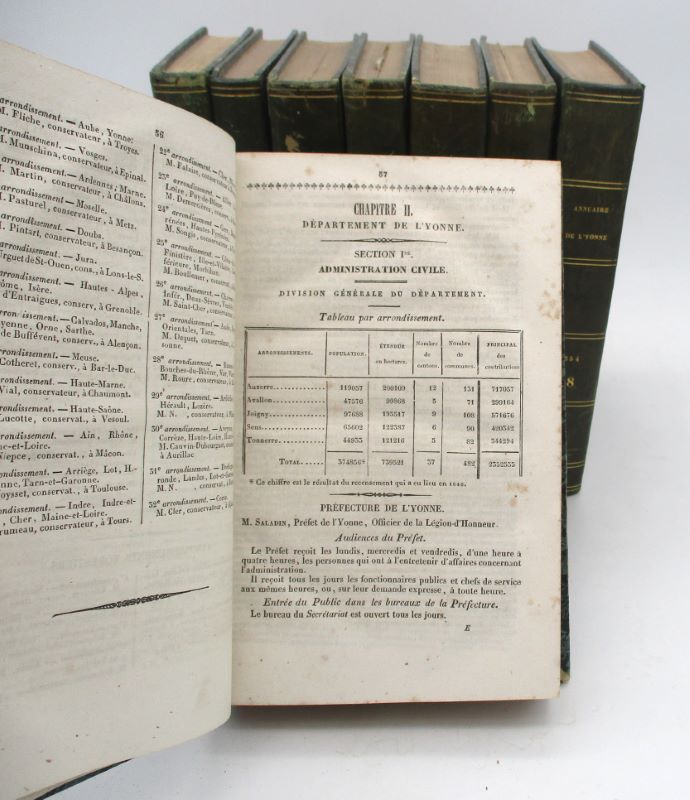 arrondissement. — Aube, Yonne.
M. Fliche, conservateur, à Troyes.
arrondissement. — Vosges.
M. Munschina, conservateur, à Épinal.
arrondissement. — Ardennes, Marne.
M. Martin, conservateur, à Châlons.
arrondissement. — Moselle.
M. Pasturel, conservateur, à Metz.
arrondissement. — Doubs.
M. Pintart, conservateur, à Besançon.
arrondissement. — Jura.
de St-Ouen, cons., à Lons-le-S.
arrondissement. — Hautes-Alpes,
Isère.
d'Entraigues, conserv., à Grenoble.
arrondissement. — Calvados, Manche,
Orne, Sarthe.
de Buffévent, conserv., à Alençon.
arrondissement. — Meuse.
Cotheret, conserv., à Bar-le-Duc.
arrondissement. — Haute-Marne.
Vial, conservateur, à Chaumont.
arrondissement. — Haute-Saône.
Lucotte, conservat., à Vesoul.
arrondissement. — Ain, Rhône,
et-Loire.
conservat., à Mâcon.
arrondissement. — Arriège, Lot, H.-
Tarn-et-Garonne.
conservat., à Toulouse.
arrondissement. — Indre, Indre-et-
Cher, Maine-et-Loire.
conservateur, à Tours.
56
22e arrondissement.
M. Falaise,
23e arrondissement.
Loire, Puy-de-Dôme
24e arrondissement.
M. Songis,
25e arrondissement.
Finistère, Ille-et-Vilaine
férieure, Morbihan.
26e arrondissement.
M. Saint-Cher,
27e arrondissement.
Orientales, Tarn.
28e arrondissement.
Bouches-du-Rhône, Var,
M. Roure,
29e arrondissement.
Hérault, Lozère.
M. N.
30e arrondissement.
Corrèze, Haute-Loire,
M. Cauvin-Dubourguet,
à Aurillac
31e arrondissement.
ronde, Landes,
M. N.
32e arrondissement. — Corse.
M. Cler, conservateur, à
57
CHAPITRE II.
DÉPARTEMENT DE L'YONNE.
SECTION Ire.
ADMINISTRATION CIVILE.
DIVISION GÉNÉRALE DU DÉPARTEMENT.
Tableau par arrondissement.
ARRONDISSEMENTS. POPULATION. ÉTENDUE en hectares. Nombre de cantons. Nombre de communes. PRINCIPAL des contributions
Auxerre 119057 200109 12 131 717057
Avallon 47576 99868 5 71 299164
Joigny 97688 195547 9 108 571676
Sens 65602 122387 6 90 420542
Tonnerre 44933 121216 5 82 344294
TOTAL 374856* 739521 37 482 2352333
* Ce chiffre est le résultat du recensement qui a eu lieu en 1846.
PRÉFECTURE DE L'YONNE.
M. SALADIN, Préfet de l'Yonne, Officier de la Légion-d'Honneur.
Audiences du Préfet.
Le Préfet reçoit les lundis, mercredis et vendredis, d'une heure à
quatre heures, les personnes qui ont à l'entretenir d'affaires concernant
l'administration.
Il reçoit tous les jours les fonctionnaires publics et chefs de service
aux mêmes heures, ou, sur leur demande expresse, à toute heure.
Entrée du Public dans les bureaux de la Préfecture.
Le bureau du Secrétariat est ouvert tous les jours.
E
ANNUAIRE
DE L'YONNE
8